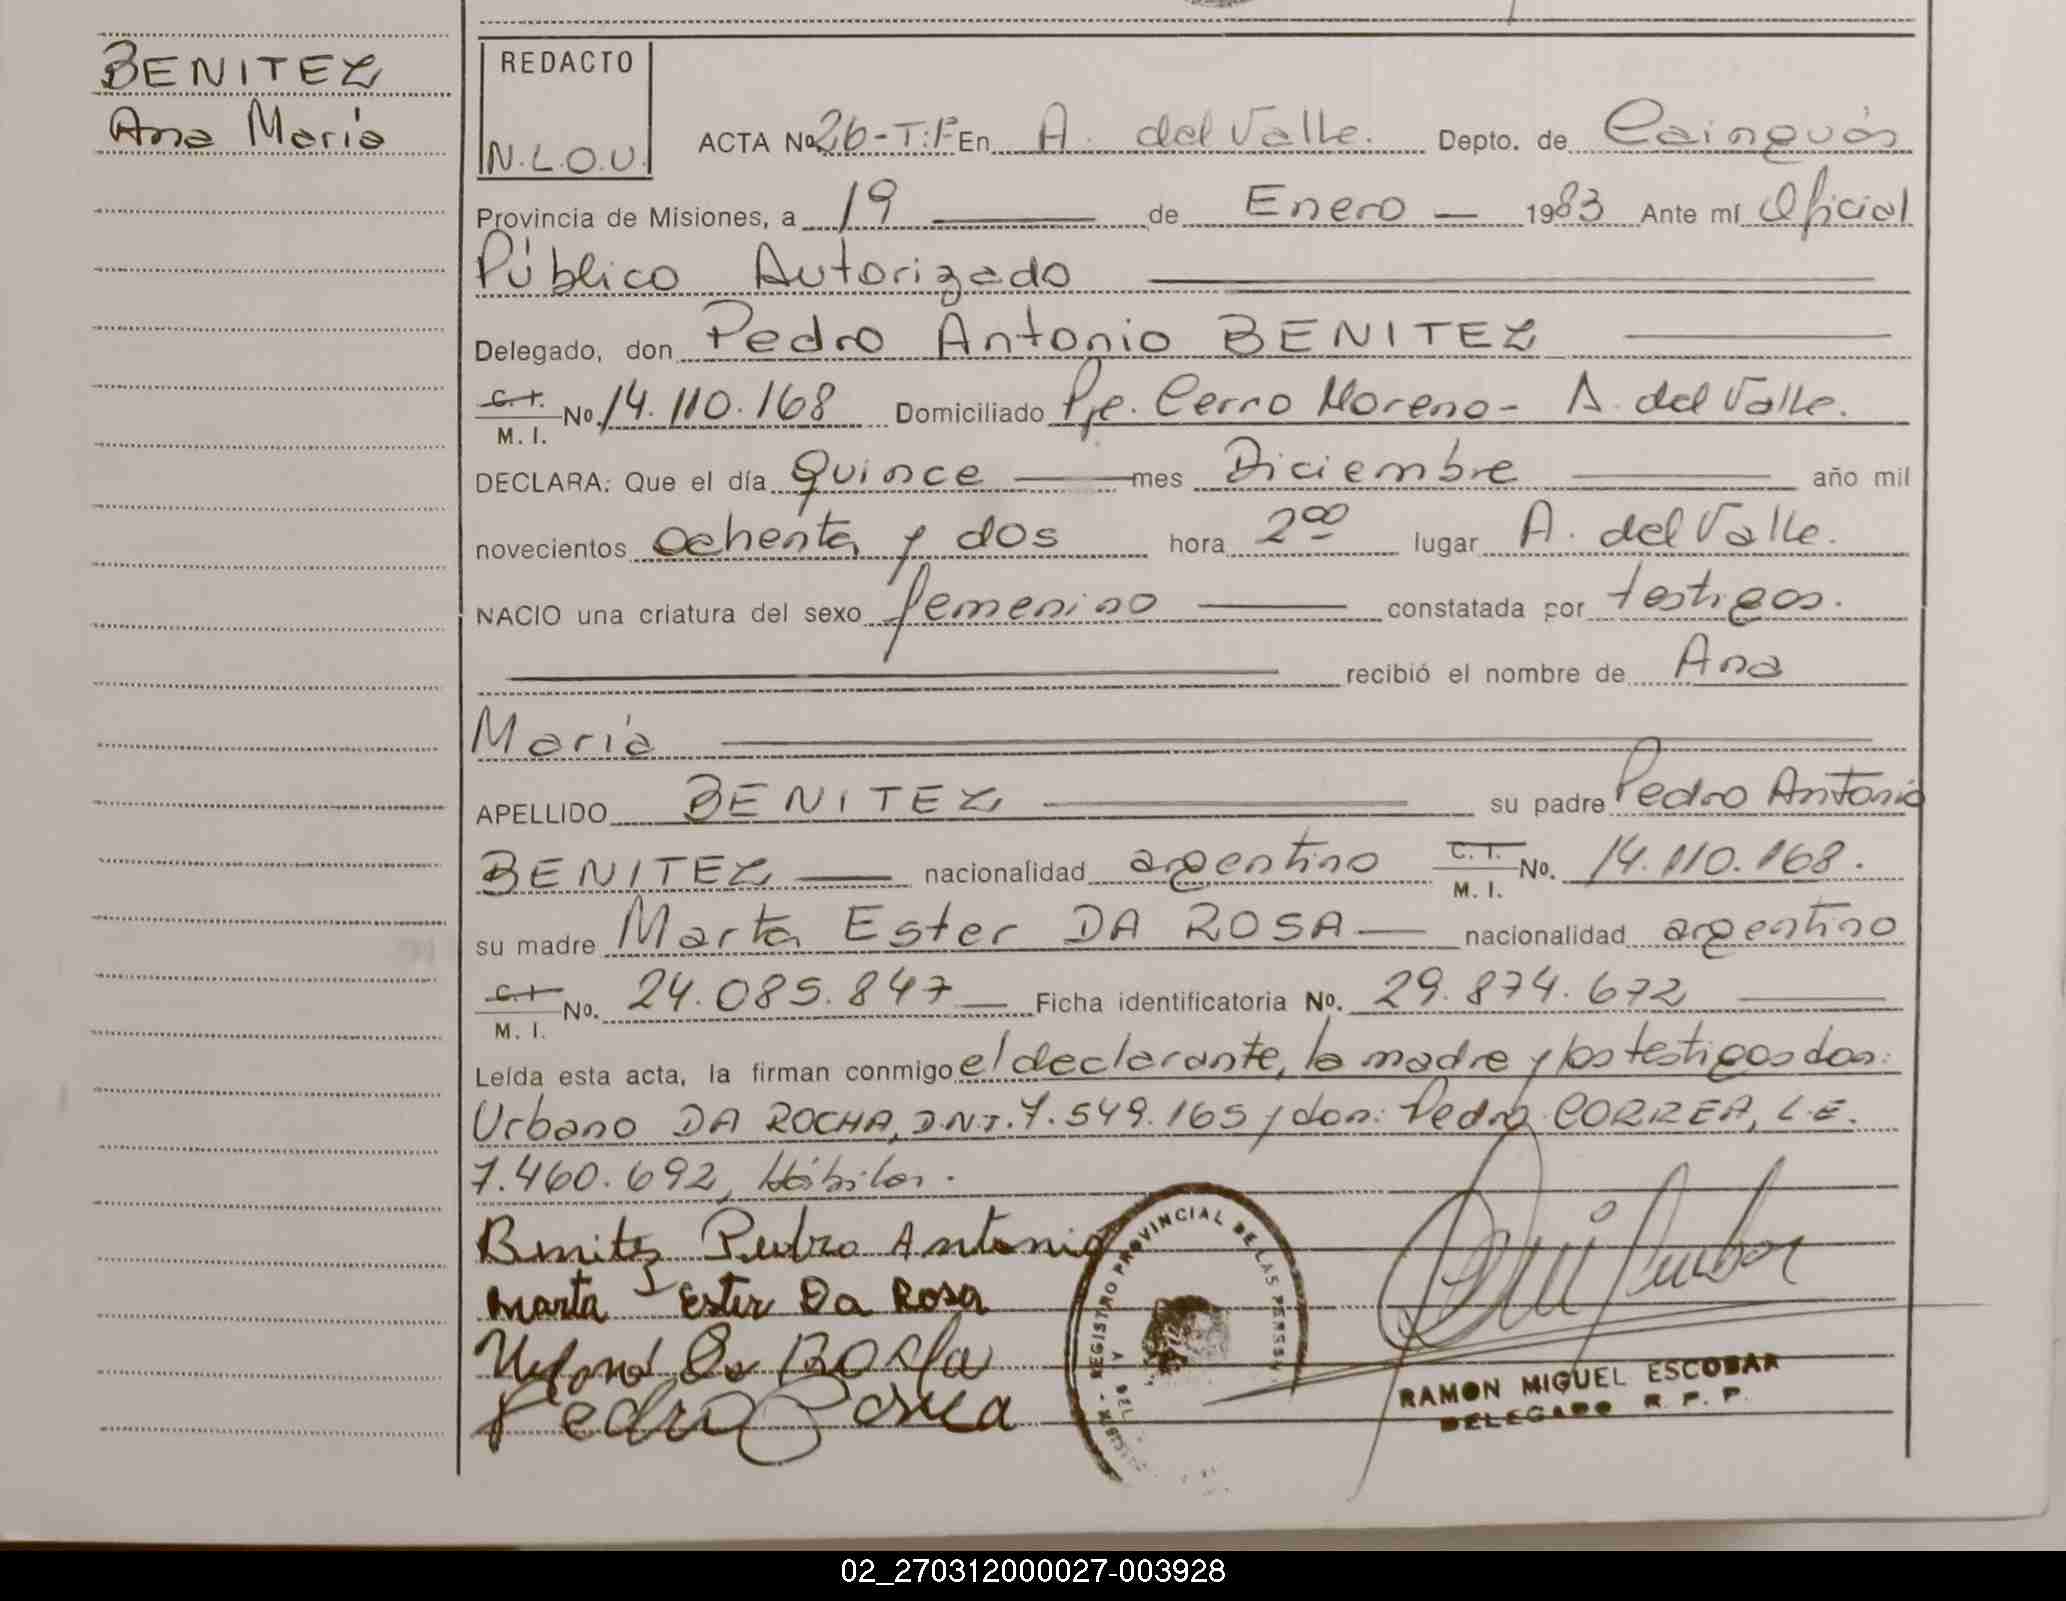 BENITEZ
Ana María
REDACTO
N.L.O.U.
ACTA Nº 26-T:I: En A. del Valle. Depto. de Cainguás
Provincia de Misiones, a 19 de Enero 1983 Ante mí Oficial
Público Autorizado
Delegado, don Pedro Antonio BENITEZ
C. I. M. I. No. 14.110.168 Domiciliado Pje. Cerro Moreno - A. del Valle.
DECLARA: Que el día quince mes Diciembre año mil
novecientos ochenta y dos hora 2 00 lugar A. del Valle.
NACIO una criatura del sexo femenino constatada por testigos.
recibió el nombre de Ana
María
APELLIDO BENITEZ su padre Pedro Antonio
BENITEZ nacionalidad argentino C. I. M. I. No. 14.110.168.
su madre Marta Ester DA ROSA nacionalidad argentino
C. I. M. I. No. 24.085.847 Ficha identificatoria No. 29.874.672
Leída esta acta, la firman conmigo el declarante, la madre y los testigos don:
Urbano DA ROCHA, D.N.I. 7.549.165 y don: Pedro CORREA, L.E.
7.460.692, Hábiles.
Benitez Pedro Antonio
Marta Ester Da Rosa
Pedro Correa
REGISTRO PROVINCIAL DE LAS PERSONAS
RAMON MIGUEL ESCOBAR
DELEGADO R. P. P.
02_270312000027-003928